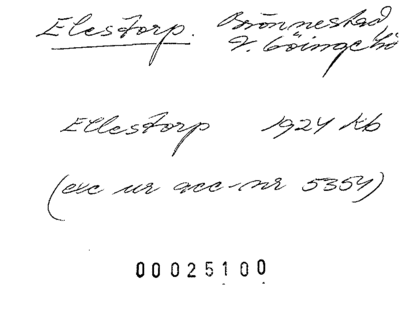 Elestorp. Brönnestad
V. Göinge hd
Ellestorp 1924 kb
(exc ur acc-nr 5354)
00025100